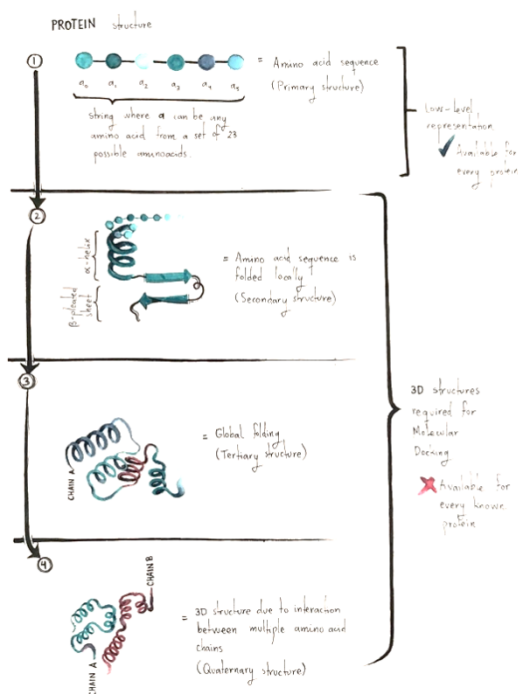 PROTEIN structure
①
a₀ a₁ a₂ a₃ a₄ a₅
string where a can be any
amino acid from a set of 23
possible aminoacids.
= Amino acid sequence
(Primary structure)
Low-level
representation
Available for
every protein
②
α-helix
β-pleated
sheet
= Amino acid sequence is
folded locally
(Secondary structure)
③
CHAIN A
= Global folding
(Tertiary structure)
3D structures
required for
Molecular
Docking
Available for
every known
protein
④
CHAIN A
CHAIN B
= 3D structure due to interaction
between multiple amino acid
chains
(Quaternary structure)